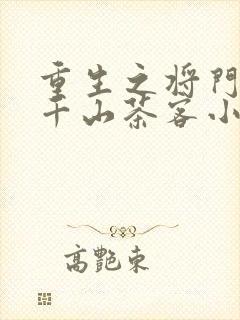 重生之将门
千山茶客小
高艷東